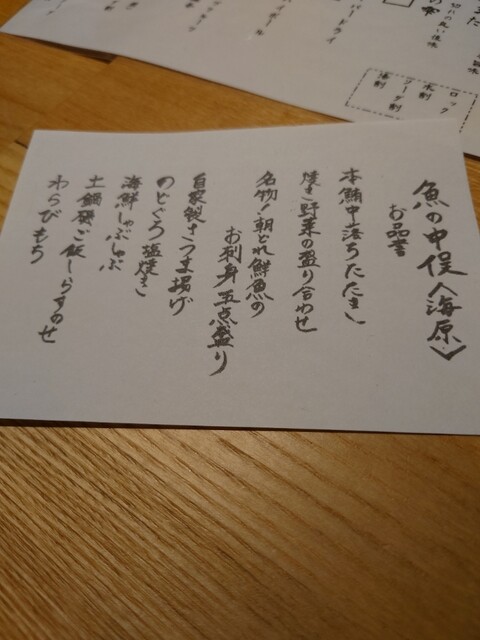 魚の中俣〈海原〉
お品書
本鮪中落ちたたき
焼き野菜の盛り合わせ
名物!朝どれ鮮魚の
お刺身五点盛り
自家製さつま揚げ
のどぐろ塩焼き
海鮮しゃぶしゃぶ
土鍋磯ご飯しらすのせ
わらびもち
ロック
水割
ソーダ割
湯割